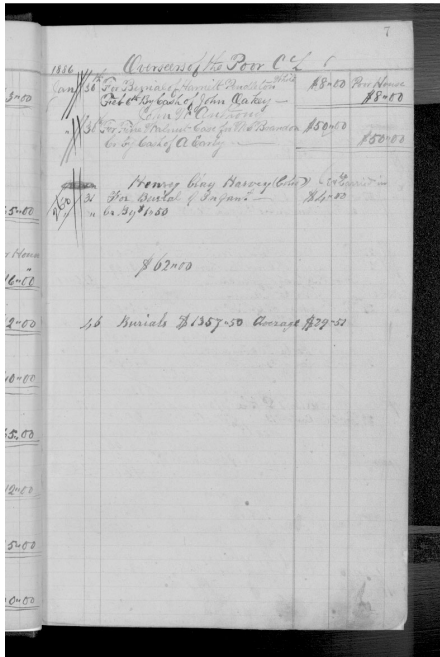 7
1886 Overseers of the Poor C
Jan 30th For Burial of Harriett Pendleton $8"00 Poor House
By Cash of John Oakey $8"00
" 31st For Fine Walnut Case for $50"00
Cr By Cash of A Early $50"00
Henry Clay Harvey (Cold)
260 " 31 For Burial of Infant $4"00
" " Cr. By $
$62"00
46 Burials $1357"50 Average $29"51
3"00
5"00
House
"
16"00
2"00
0"00
5"00
12"00
5"00
0"00